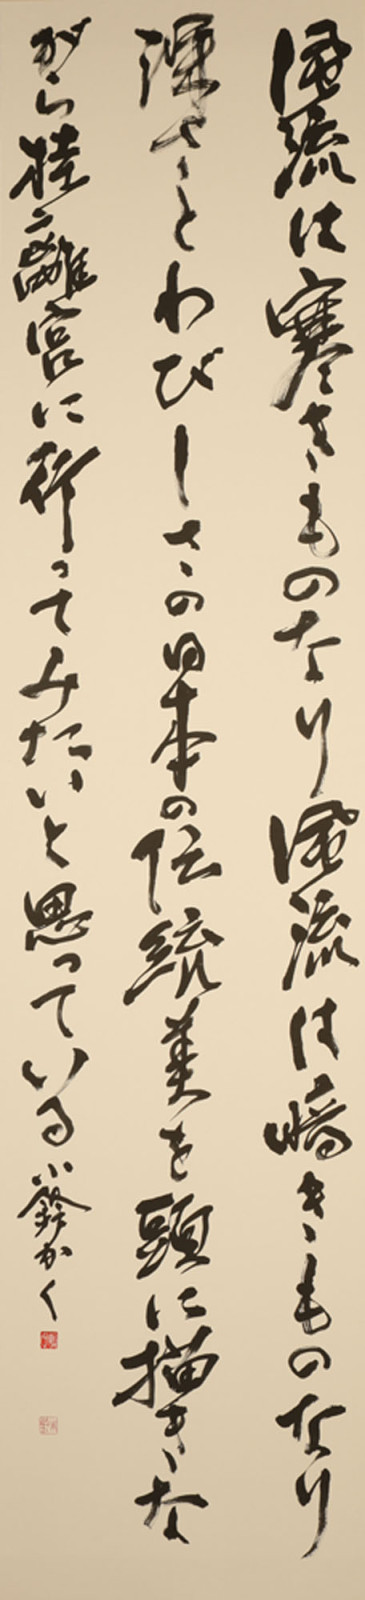 風流は寒きものなり風流は暗きものなり
深さとわびしさの日本の伝統美を頭に描きな
がら桂離宮に行ってみたいと思っている小鈴かく